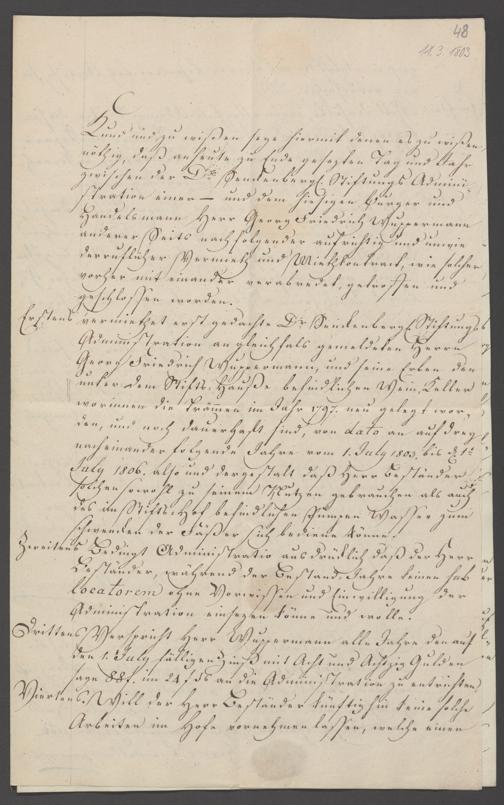 48
11.3.1803
Kund und zu wißen seye hiermit denen es zu wißen
nöthig, daß an heute zu Ende gesetzten Tag und Jahr
zwischen der Dr. Senckenbergl. Stiftungs Admini-
stration einer — und dem hiesigen Burger und
Handelsmann Herr Georg Friedrich Wuppermann
anderer Seits nachfolgender aufrichtig und unwie-
derruflicher Vermieth und Miethkontrackt, wie solcher
vorher mit einander verabredet, getroffen und
geschlossen worden.
Erstens vermiethet erst gedachte Dr. Senckenbergl. Stiftungs
Administration an gleichfals gemeldeten Herrn
Georg Friedrich Wuppermann, und seine Erben den
unter dem Stifts Hauße befindlichen Wein Keller
worinnen die im Jahr 1797. neu gelegt wor-
den, und noch dauerhaft sind, von dato an auf drey
nacheinander folgende Jahre vom 1. July 1803. bis d. 1t
July 1806. also und dergestalt daß Herr Beständer
solchen sowohl zu seinem Nutzen gebrauchen als auch
des im Stifts Hof befindlichen Pumpen Wasser zum
schwenken der Fäßer sich bediene könne.
Zweitens Bedingt Administratio ausdrücklich daß der Herr
Beständer, während der Bestand Jahre keinen sub
locatorem ohne Vorwissen und Einwilligung der
Administration einsezen könne und wolle.
Drittens Verspricht Herr Wuppermann alle Jahre den auf
den 1. July fälligen Zinß mit Acht und Achtzig Gulden
sage 88f. im 24 f. fs an die Administration zu entrichten
Viertens Will der Herr Beständer künftighin keine solche
Arbeiten im Hofe vornehmen lassen, welche einen